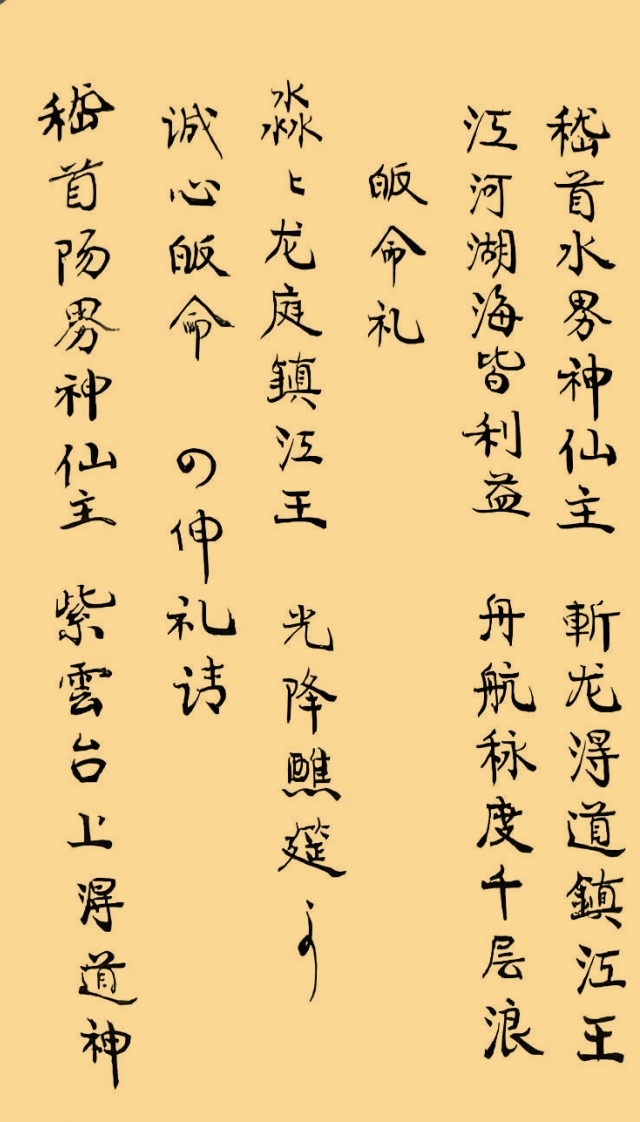 嵇首水界神仙主 斬龙淂道鎮江王
江河湖海皆利益 舟航秘度千层浪
皈命礼
淼〻龙庭鎮江王 光降醮筵
诚心皈命 の伸礼请
嵇首陽界神仙主 紫雲台上淂道神